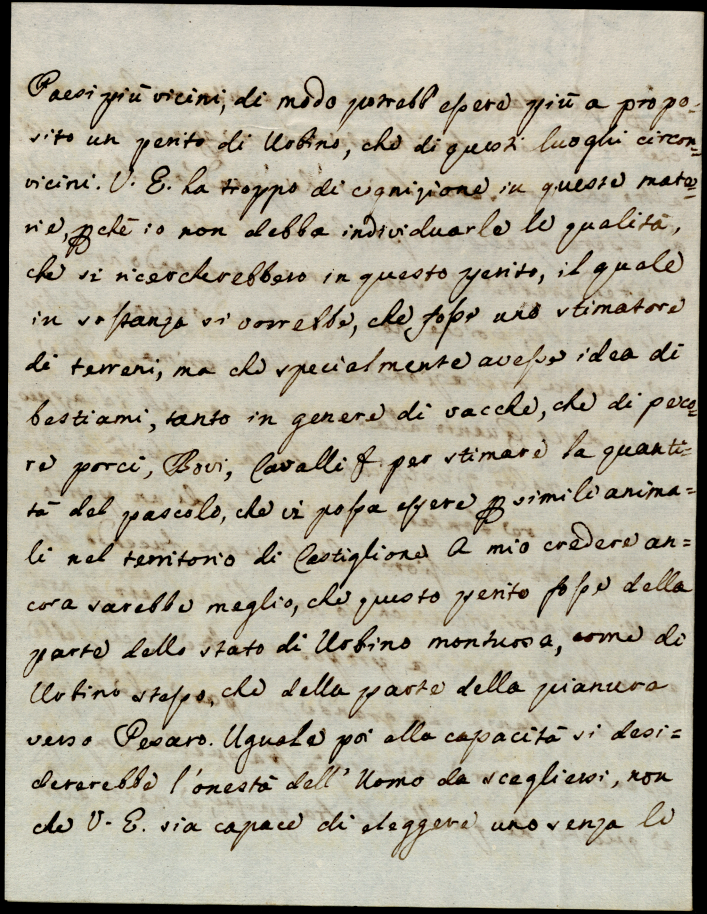 Paesi più vicini, di modo potrebb'essere più a propo-
sito un perito di Urbino, che di questi luoghi circon=
vicini. V. E. ha troppo di cognizione in queste mate=
rie, pchè io non debba individuarle le qualità,
che si ricercherebbero in questo perito, il quale
in sostanza si vorrebbe, che fosse uno stimatore
di terreni, ma che specialmente avesse idea di
bestiami, tanto in genere di vacche, che di peco=
re porci, Bovi, Cavalli &. per stimare la quanti=
tà del pascolo, che vi possa essere p simili anima=
li nel territorio di Castiglione. A mio credere an=
cora sarebbe meglio, che questo perito fosse della
parte dello stato di Urbino montuosa, come di
Urbino stesso, che della parte della pianura
verso Pesaro. Uguale poi alla capacità si desi=
dererebbe l'onestà dell'Uomo da scegliersi, non
che V. E. sia capace di eleggere uno senza le